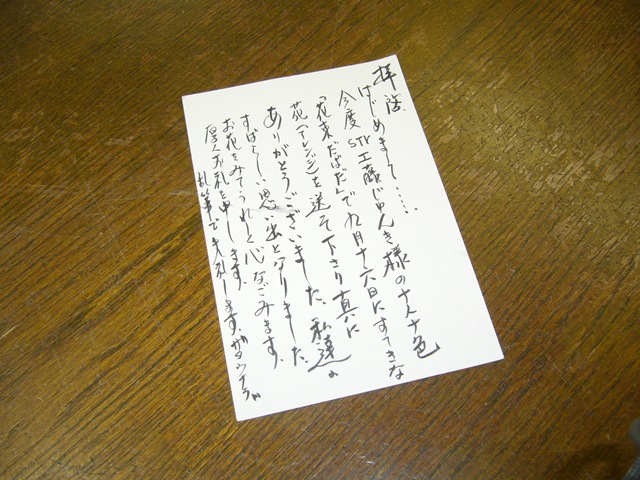 拝啓
はじめまして……
今度STV工藤じゅんき様の十人十色
「花束だばだ」で九月十六日にすてきな
花(アレンジ)を送って下さり真に
ありがとうございました、私達の
すばらしい思い出となりました。
お花をみてうれしく心なごみます。
厚くお礼を申します。
乱筆で失礼します。